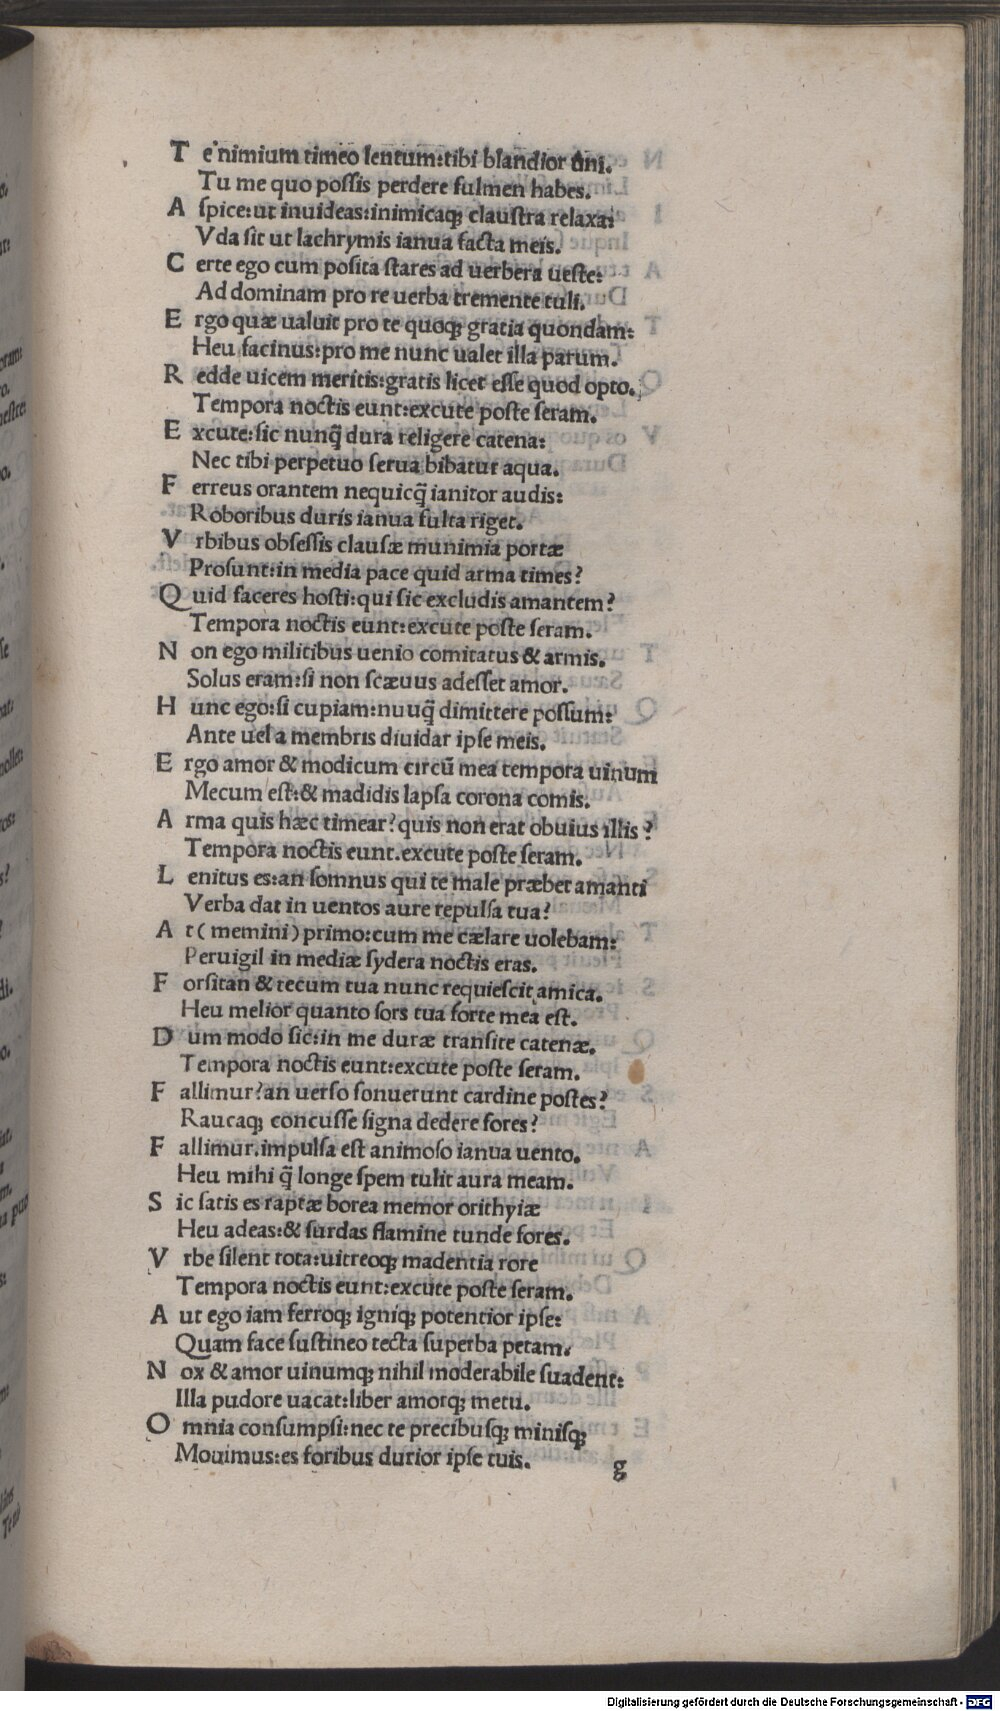 T e nimium timeo lentum:tibi blandior uni.
Tu me quo possis perdere fulmen habes.
A spice:ut inuideas:inimicaq; claustra relaxa:
Vda sit ut lachrymis ianua facta meis.
C erte ego cum posita stares ad uerbera ueste:
Ad dominam pro re uerba tremente tuli.
E rgo quæ ualuit pro te quoq; gratia quondam:
Heu facinus:pro me nunc ualet illa parum.
R edde uicem meritis:gratis licet esse quod opto.
Tempora noctis eunt:excute poste seram.
E xcute:sic nunq̃ dura religere catena:
Nec tibi perpetuo serua bibatur aqua.
F erreus orantem nequicq̃ ianitor audis:
Roboribus duris ianua fulta riget.
V rbibus obsessis clausæ munimia portæ
Prosunt:in media pace quid arma times?
Q uid faceres hosti:qui sic excludis amantem?
Tempora noctis eunt:excute poste seram.
N on ego militibus uenio comitatus & armis.
Solus eram:si non scæuus adesset amor.
H unc ego:si cupiam:nuuq̃ dimittere possum:
Ante uel a membris diuidar ipse meis.
E rgo amor & modicum circũ mea tempora uinum
Mecum est:& madidis lapsa corona comis.
A rma quis hæc timear? quis non erat obuius illis?
Tempora noctis eunt.excute poste seram.
L enitus es:an somnus qui te male præbet amanti
Verba dat in uentos aure repulsa tua?
A t ( memini ) primo:cum me cælare uolebam:
Peruigil in mediæ sydera noctis eras.
F orsitan & tecum tua nunc requiescit amica.
Heu melior quanto sors tua sorte mea est.
D um modo sic:in me duræ transite catenæ.
Tempora noctis eunt:excute poste seram.
F allimur? an uerso sonuerunt cardine postes?
Raucaq; concusse signa dedere fores?
F allimur.impulsa est animoso ianua uento.
Heu mihi q̃ longe spem tulit aura meam.
S ic satis es raptæ borea memor orithyiæ
Heu adeas:& surdas flamine tunde fores.
V rbe silent tota:uitreoq; madentia rore
Tempora noctis eunt:excute poste seram.
A ut ego iam ferroq; igniq; potentior ipse:
Quam face sustineo tecta superba petam.
N ox & amor uinumq; nihil moderabile suadent:
Illa pudore uacat:liber amorq; metu.
O mnia consumpsi:nec te precibusq; minisq;
Mouimus:es foribus durior ipse tuis.
g
Digitalisierung gefördert durch die Deutsche Forschungsgemeinschaft - DFG